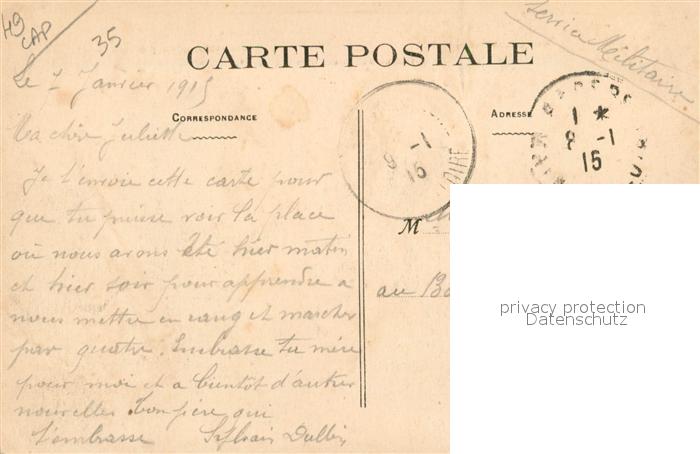 49
CAP
35
CARTE POSTALE
Service Militaire
Le 7 Janvier 1915
CORRESPONDANCE
ADRESSE
Ma chère Juliette
Je t'envoie cette carte pour
que tu puisse voir la place
où nous avons été hier matin
et hier soir pour apprendre a
nous mettre en rang et marcher
par quatre. Embrasse tu mère
pour moi et a bientot d'autres
nouvelles. Ton père qui
t'embrasse Sylvain
1 *
8 -1
15
8 -1
15
LOIRE
M
au
privacy protection
Datenschutz